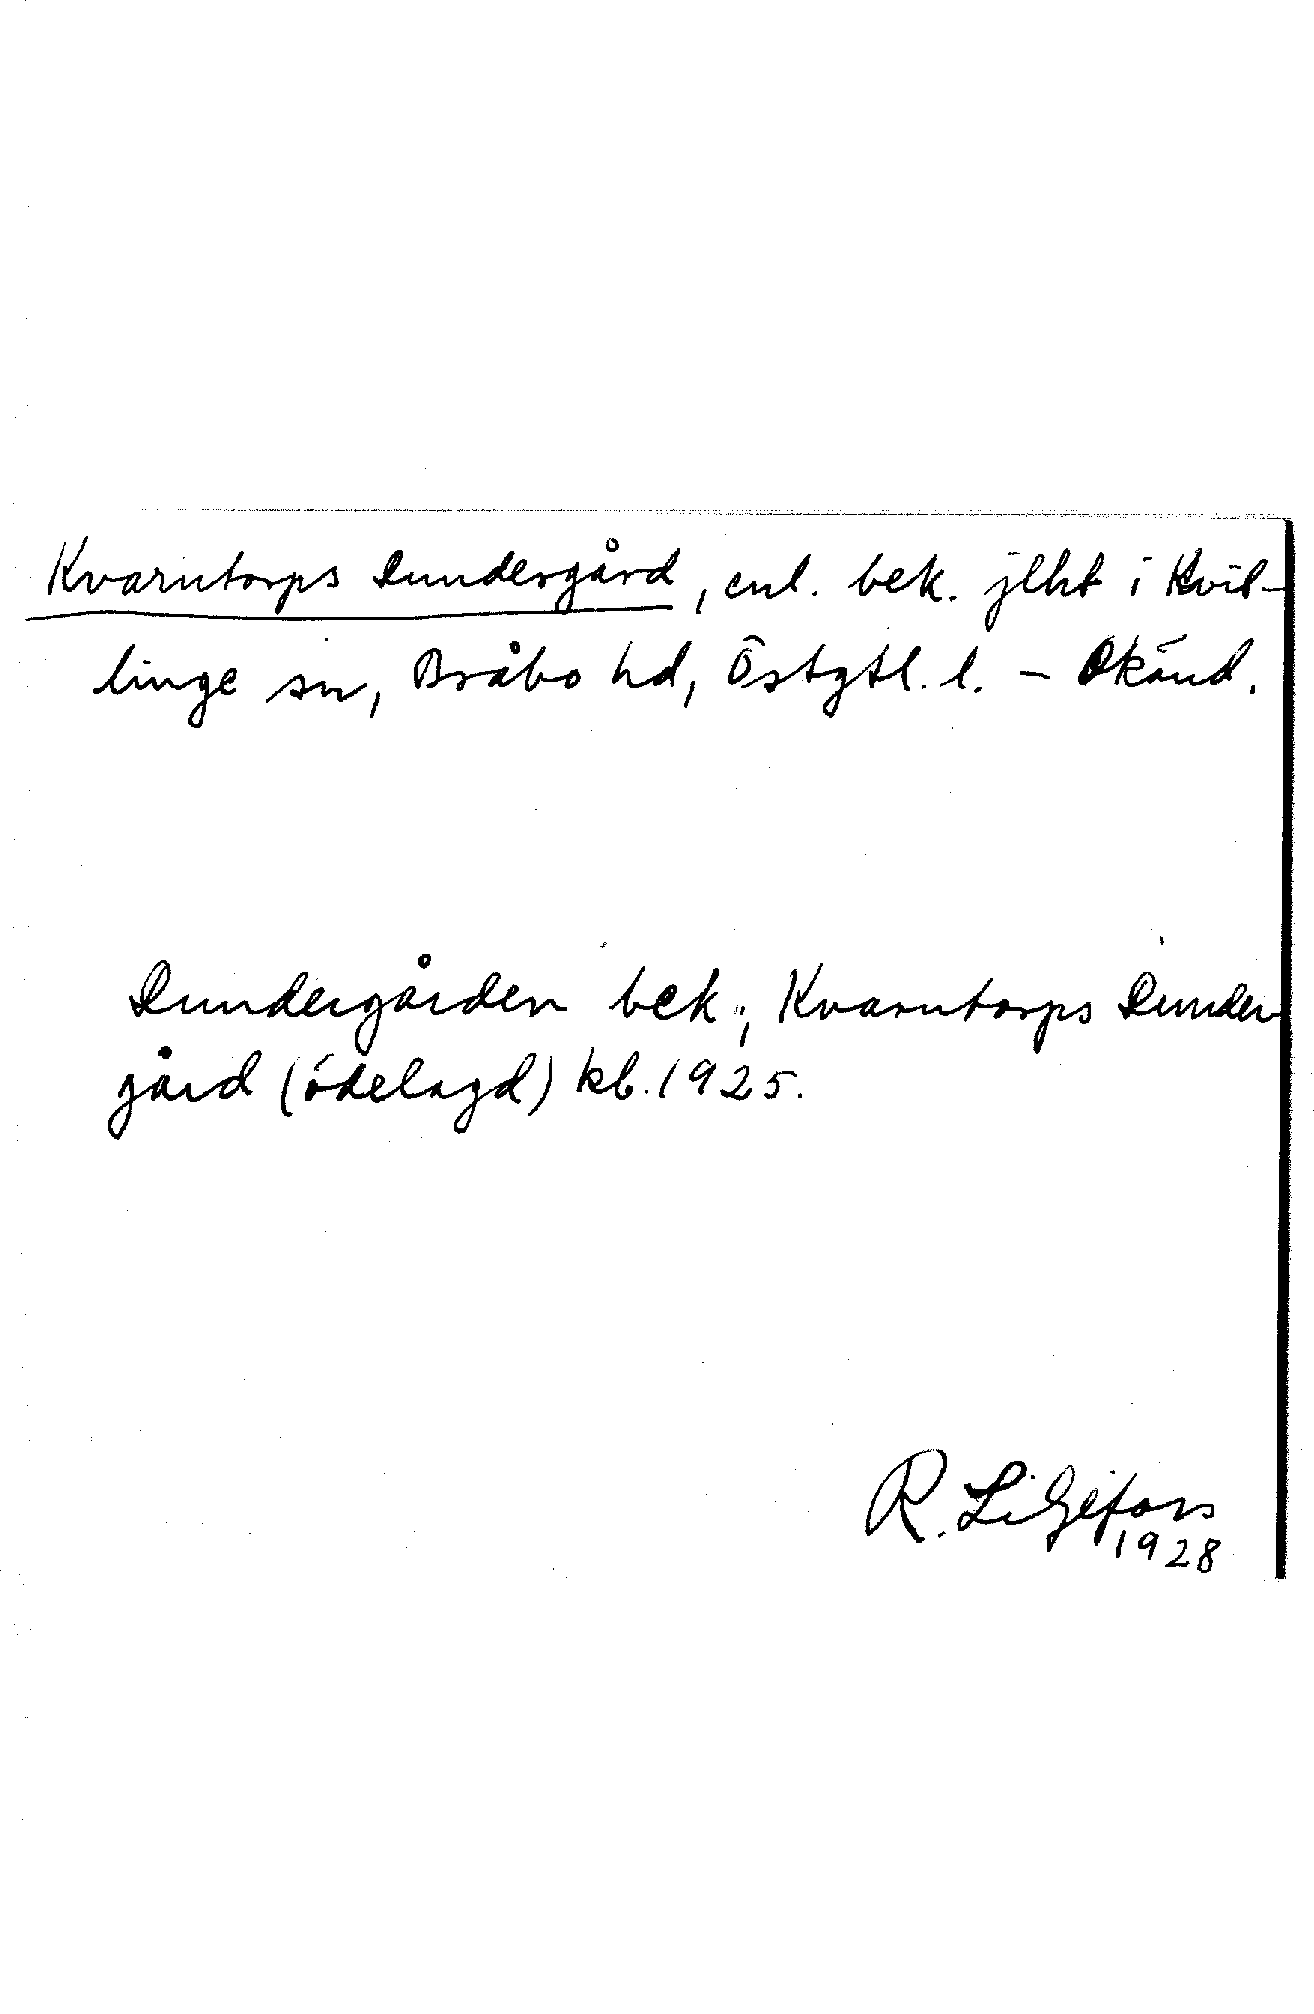 Kvarntorps Dundergård, enl. bek. jlht i Kvil-
linge sn, Bråbo hd, Östgtl. l. – Okänd.
Dundergården bek.; Kvarntorps Dunder-
gård (ödelagd) kb. 1925.
R. Liljefors
1928